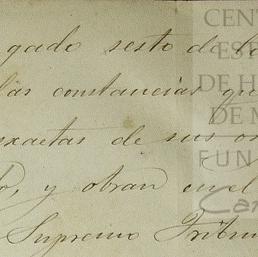 gado sesto de lo
las constancias que
exactas de sus or
do, y obran en el
Supremo Tribun
CENT
ES
DE H
DE M
FUN
Car